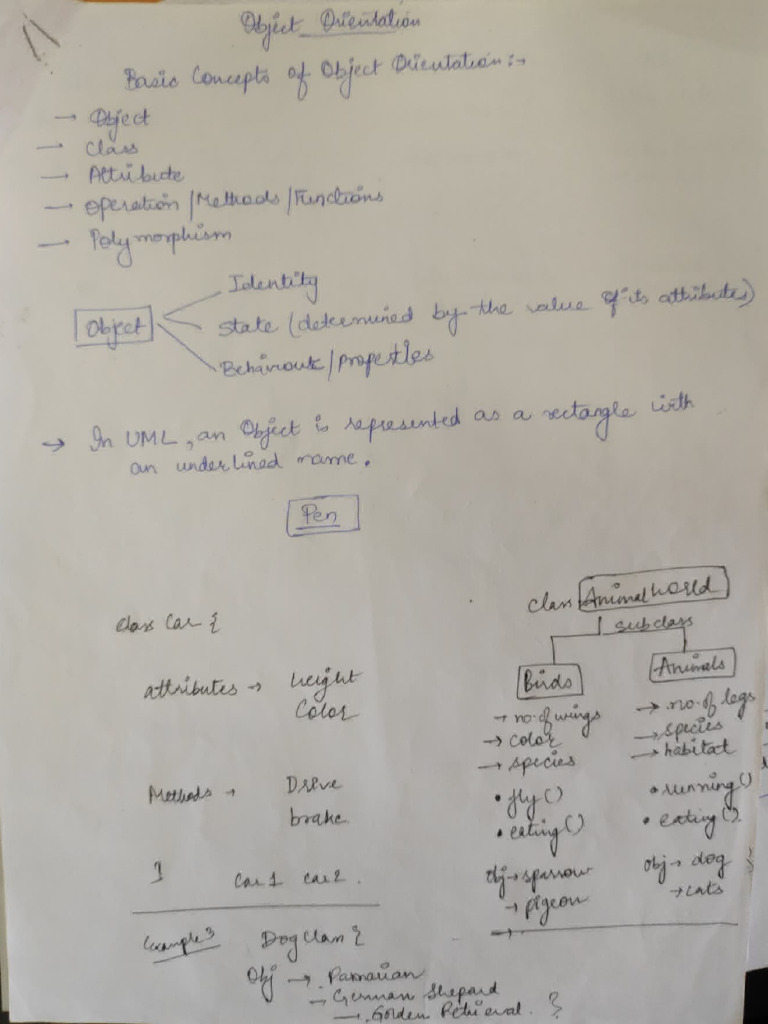 Object Orientation
Basic Concepts of Object Orientation :→
→ Object
→ Class
→ Attribute
→ Operation/Methods/Functions
→ Polymorphism
Object
Identity
State (determined by the value of its attributes)
Behaviour/properties
→ In UML, an Object is represented as a rectangle with
an underlined name.
Pen
class Car {
attributes → height
Color
Methods → Drive
brake
}
Car 1 Car 2 .
class Animal World
subclass
Birds
→ no. of wings
→ color
→ species
• fly()
• eating()
obj → sparrow
→ pigeon
Animals
→ no. of legs
→ species
→ habitat
• running()
• eating()
obj → dog
→ cats
Example 3 Dog Class {
Obj → Pamarian
→ German Shepard
→ Golden Retrieval . }